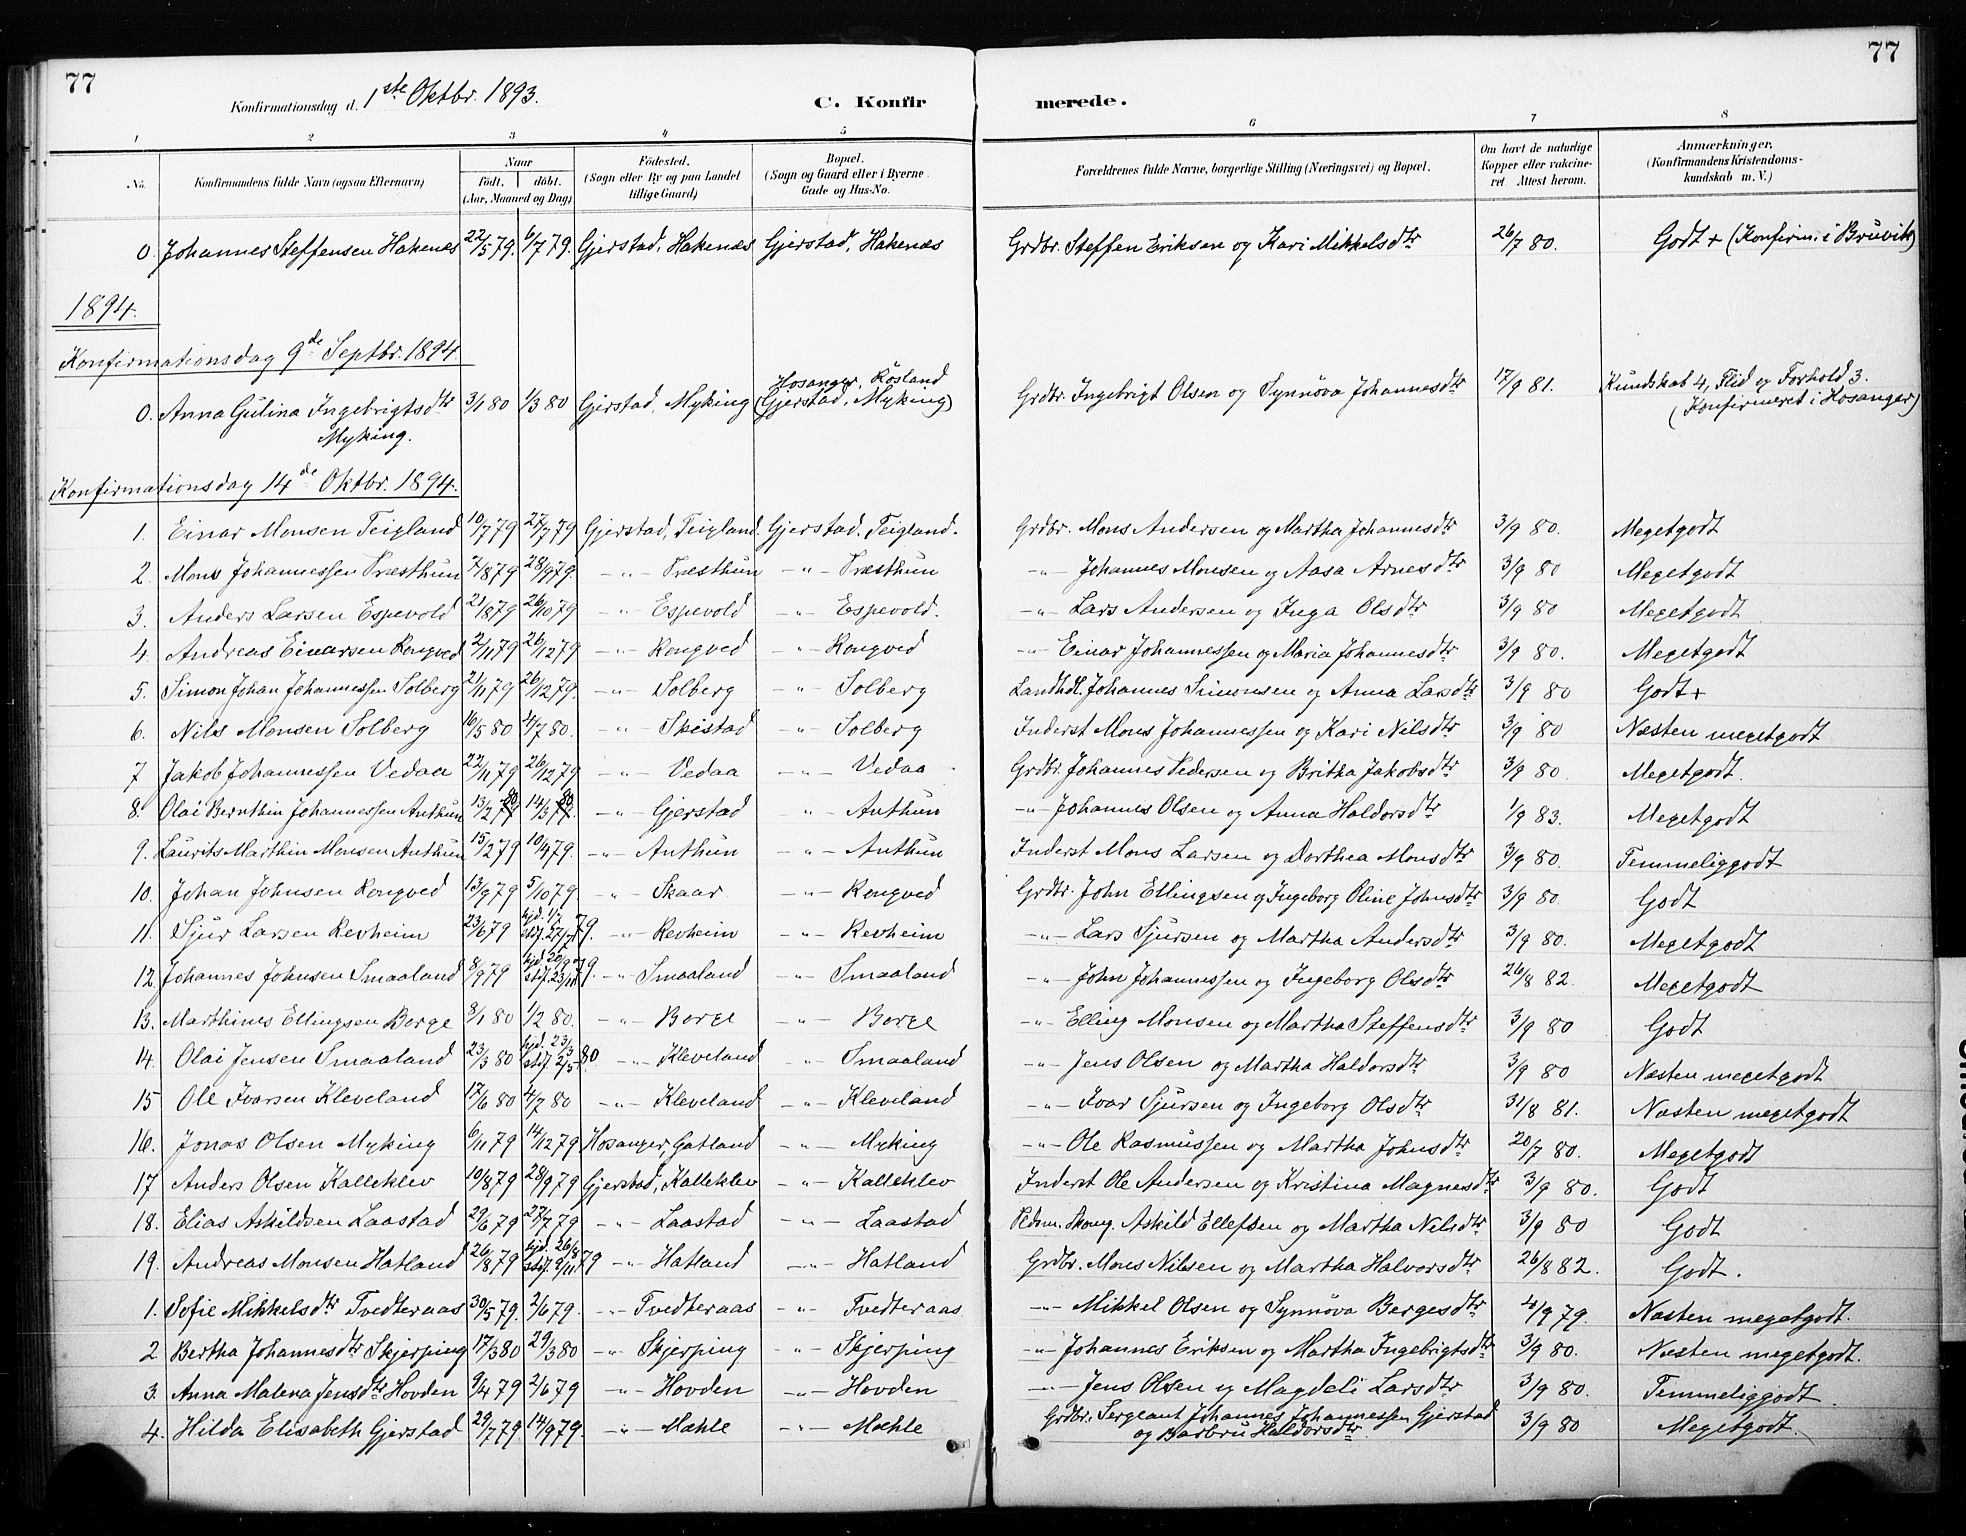 77
77
Konfirmationsdag d. 1ste Oktbr. 1893.
C. Konfirmerede.
1 2 3 4 5 6 7 8
No. Konfirmandens fulde Navn (ogsaa Efternavn) Naar Födt. döbt. (Aar, Maaned og Dag) Födested. (Sogn eller By og paa Landet tillige Gaard) Bopæl. (Sogn og Gaard eller i Byerne Gade og Hus-No. Forældrenes fulde Navne, borgerlige Stilling (Næringsvei) og Bopæl. Om havt de naturlige Kopper eller vakcineret. Attest herom. Anmærkninger, (Konfirmandens Kristendomskundskab m. V.)
0. Johannes Steffensen Hakenæs 22/5 79. 6/7 79. Gjerstad, Hakenæs Gjerstad, Hakenæs Grdbr. Steffen Eriksen og Kari Mikkelsdtr 26/7 80. Godt + (Konfirm. i Bruvik)
1894.
Konfirmationsdag 9de Septbr. 1894.
0. Anna Gulina Ingebrigtsdtr Myking. 3/1 80 1/3 80 Gjerstad, Myking Hosanger, Rösland (Gjerstad, Myking) Grdbr. Ingebrigt Olsen og Synnöva Johannesdtr 17/9 81. Kundskab 4, Flid og Forhold 3. (Konfirmeret i Hosanger)
Konfirmationsdag 14de Oktbr. 1894.
1. Einar Monsen Teigland 10/7 79 27/7 79 Gjerstad, Teigland. Gjerstad, Teigland. Grdbr. Mons Andersen og Martha Johannesdtr 3/9 80. Megetgodt
2. Mons Johannessen Træsthun 7/8 79 28/9 79. -"- Træsthun -"- Træsthun -"- Johannes Monsen og Aasa Arnesdtr 3/9 80 Megetgodt
3. Anders Larsen Espevold 21/8 79 26/10 79 -"- Espevold -"- Espevold. -"- Lars Andersen og Inga Olsdtr 3/9 80 Megetgodt
4. Andreas Einarsen Rongved 2/11 79 26/12 79 -"- Rongved -"- Rongved -"- Einar Johannessen og Maria Johannesdtr 3/9 80. Megetgodt
5. Simon Johan Johannessen Solberg 21/11 79 26/12 79. -"- Solberg -"- Solberg Landhdl. Johannes Simonsen og Anna Larsdtr 3/9 80 Godt +
6. Nils Monsen Solberg 16/5 80 4/7 80. -"- Skistad -"- Solberg Inderst Mons Johannessen og Kari Nilsdtr 3/9 80 Næsten megetgodt
7 Jakob Johannessen Vedaa 22/11 79 26/12 79 -"- Vedaa -"- Vedaa Grdbr. Johannes Pedersen og Britha Jakobsdtr 3/9 80. Megetgodt.
8. Olai Bernthin Johannessen Anthun 13/2 80 14/3 80 -"- Gjerstad -"- Anthun -"- Johannes Olsen og Anna Haldorsdtr 1/9 83. Megetgodt
9. Laurits Marthin Monsen Anthun 15/2 79 10/4 79. -"- Anthun -"- Anthun Inderst Mons Larsen og Dorthea Monsdtr 3/9 80. Temmeliggodt
10. Johan Johnsen Rongved 13/9 79 5/10 79. -"- Skaar -"- Rongved Grdbr. John Ellingsen og Ingeborg Oline Johnsdtr 3/9 80. Godt
11. Sjur Larsen Revheim 23/6 79 hjd. 1/7 stf. 27/7 79. -"- Revheim -"- Revheim -"- Lars Sjursen og Martha Andersdtr 3/9 80. Megetgodt
12. Johannes Johnsen Smaaland 8/9 79 hjd. 20/9 stf. 23/11 79. -"- Smaaland -"- Smaaland -"- John Johannessen og Ingeborg Olsdtr 26/8 82. Megetgodt
13. Marthines Ellingsen Borge 3/1 80 1/2 80. -"- Borge -"- Borge -"- Elling Monsen og Martha Steffensdtr 3/9 80 Godt
14. Olai Jensen Smaaland 23/3 80 hjd. 23/3 stf. 2/5 80 -"- Kleveland -"- Smaaland -"- Jens Olsen og Martha Haldorsdtr 3/9 80 Næsten megetgodt
15 Ole Ivarsen Kleveland 17/6 80 4/7 80 -"- Kleveland -"- Kleveland -"- Ivar Sjursen og Ingeborg Olsdtr 31/8 81. Næsten megetgodt
16. Jonas Olsen Myking 6/11 79 14/12 79 Hosanger, Gatland -"- Myking -"- Ole Rasmussen og Martha Johnsdtr 20/7 80. Megetgodt
17 Anders Olsen Kalleklev 10/8 79 28/9 79 Gjerstad, Kalleklev -"- Kalleklev Inderst Ole Andersen og Kristina Magnesdtr 3/9 80. Godt
18. Elias Askildsen Laastad 29/6 79 27/7 79 -"- Laastad -"- Laastad Askild Ellefsen og Martha Nilsdtr 3/9 80 Godt
19. Andreas Monsen Hatland 26/8 79 hjd. 26/8 stf. 9/11 79 -"- Hatland -"- Hatland Grdbr. Mons Nilsen og Martha Halvorsdtr 26/8 82. Godt.
1. Sofie Mikkelsdtr Tvedteraas 30/5 79. 2/6 79. -"- Tvedteraas -"- Tvedteraas -"- Mikkel Olsen og Synnöva Bergesdtr 4/9 79. Næsten megetgodt.
2. Bertha Johannesdtr Skjerping 17/3 80 29/3 80 -"- Skjerping -"- Skjerping -"- Johannes Eriksen og Martha Ingebrigtsdtr 3/9 80. Næsten megetgodt.
3. Anna Malena Jensdtr Hovden 9/4 79 2/6 79 -"- Hovden -"- Hovden -"- Jens Olsen og Magdeli Larsdtr 3/9 80. Temmeliggodt.
4. Hilda Elisabeth Gjerstad 29/7 79. 14/9 79. -"- Mæhle -"- Mæhle Grdbr. Sergeant Johannes Johannessen Gjerstad og Barbru Haldorsdtr. 3/9 80 Megetgodt.